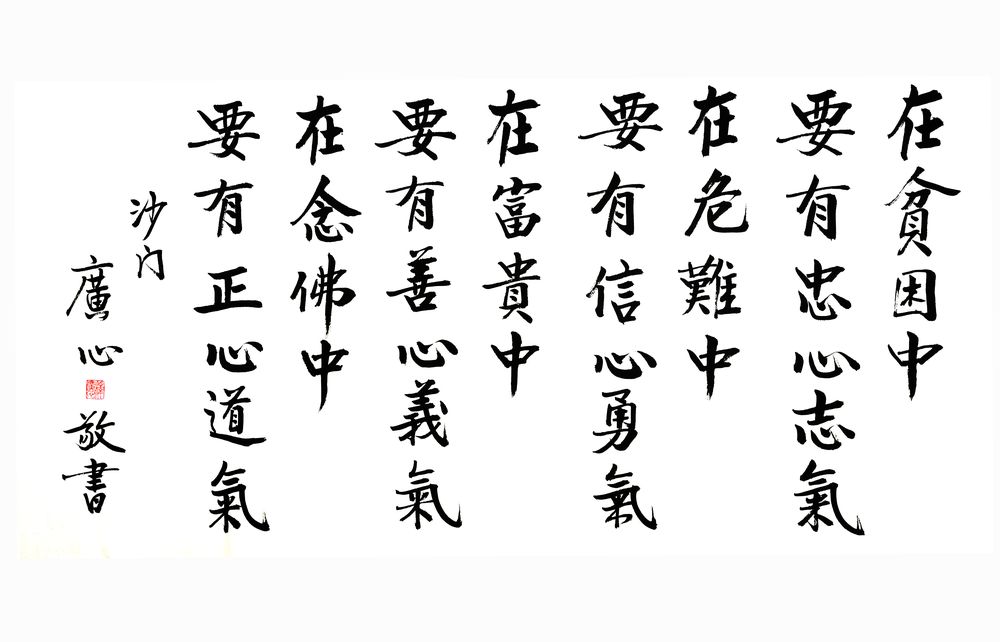 在貧困中
要有忠心志氣
在危難中
要有信心勇氣
在富貴中
要有善心義氣
在念佛中
要有正心道氣
沙门
廣心
敬書